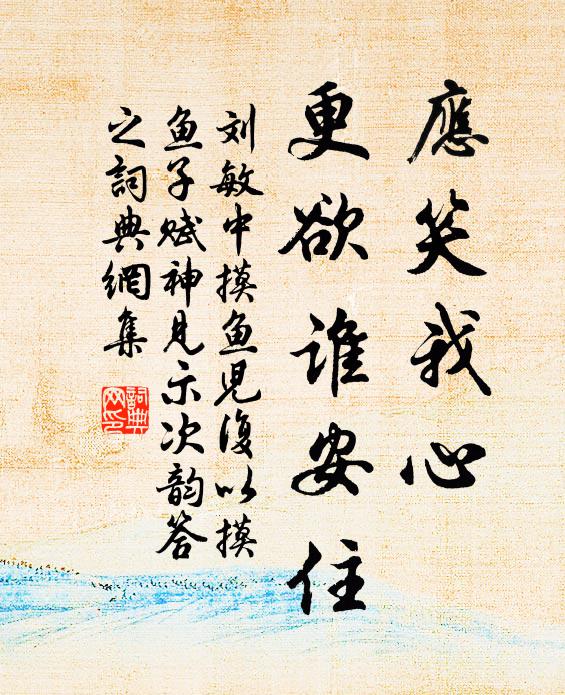 應笑我心
更欲誰安住
刘敏中摸鱼児復以摸
鱼子赋神見示次韵答
之詞典網集
詞典
网印